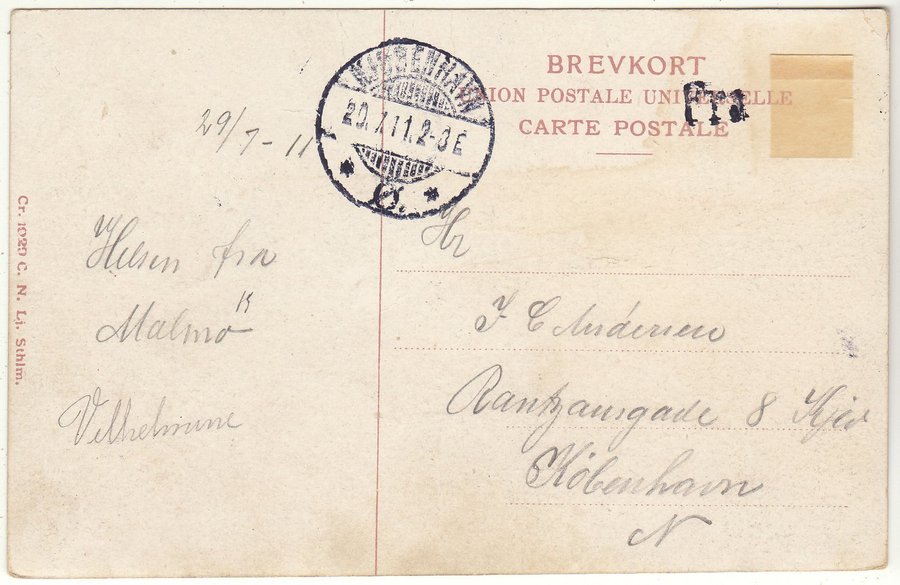 BREVKORT
UNION POSTALE UNIVERSELLE
CARTE POSTALE
Fra
KJØBENHAVN
29.7.11.2-3E
Ø.
29/7-11
Hilsen fra
Malmö
Vilhelmine
Hr
J C Andersen
Rantzausgade 8
København
N
Cr. 1029 C. N. Lj. Sthlm.